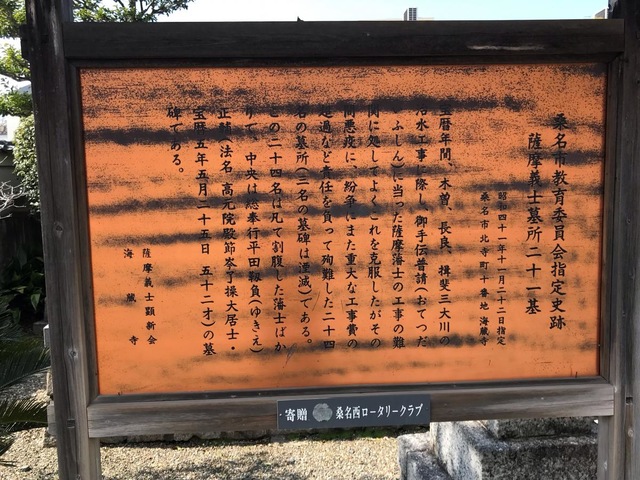 桑名市教育委員会指定史跡
薩摩義士墓所二十一基
昭和四十一年十一月二十二日指定
桑名市北寺町十番地 海蔵寺
宝暦年間、木曽、長良、揖斐三大川の
治水工事に際し、御手伝普請(おてつだ
いふしん)に当った薩摩藩士の工事の難
関に処してよくこれを克服したがその
間悪疫に、紛争にまた重大な工事費の
超過など責任を負って殉難した二十四
名の墓所(三名の墓碑は湮滅)である。
この二十四名は凡て割腹した藩士ばか
りで、中央は総奉行平田靱負(ゆきえ)
正輔(法名 高元院殿節岑了操大居士・
宝暦五年五月二十五日 五十二才)の墓
碑である。
薩摩義士顕新会
海蔵寺
寄贈 桑名西ロータリークラブ